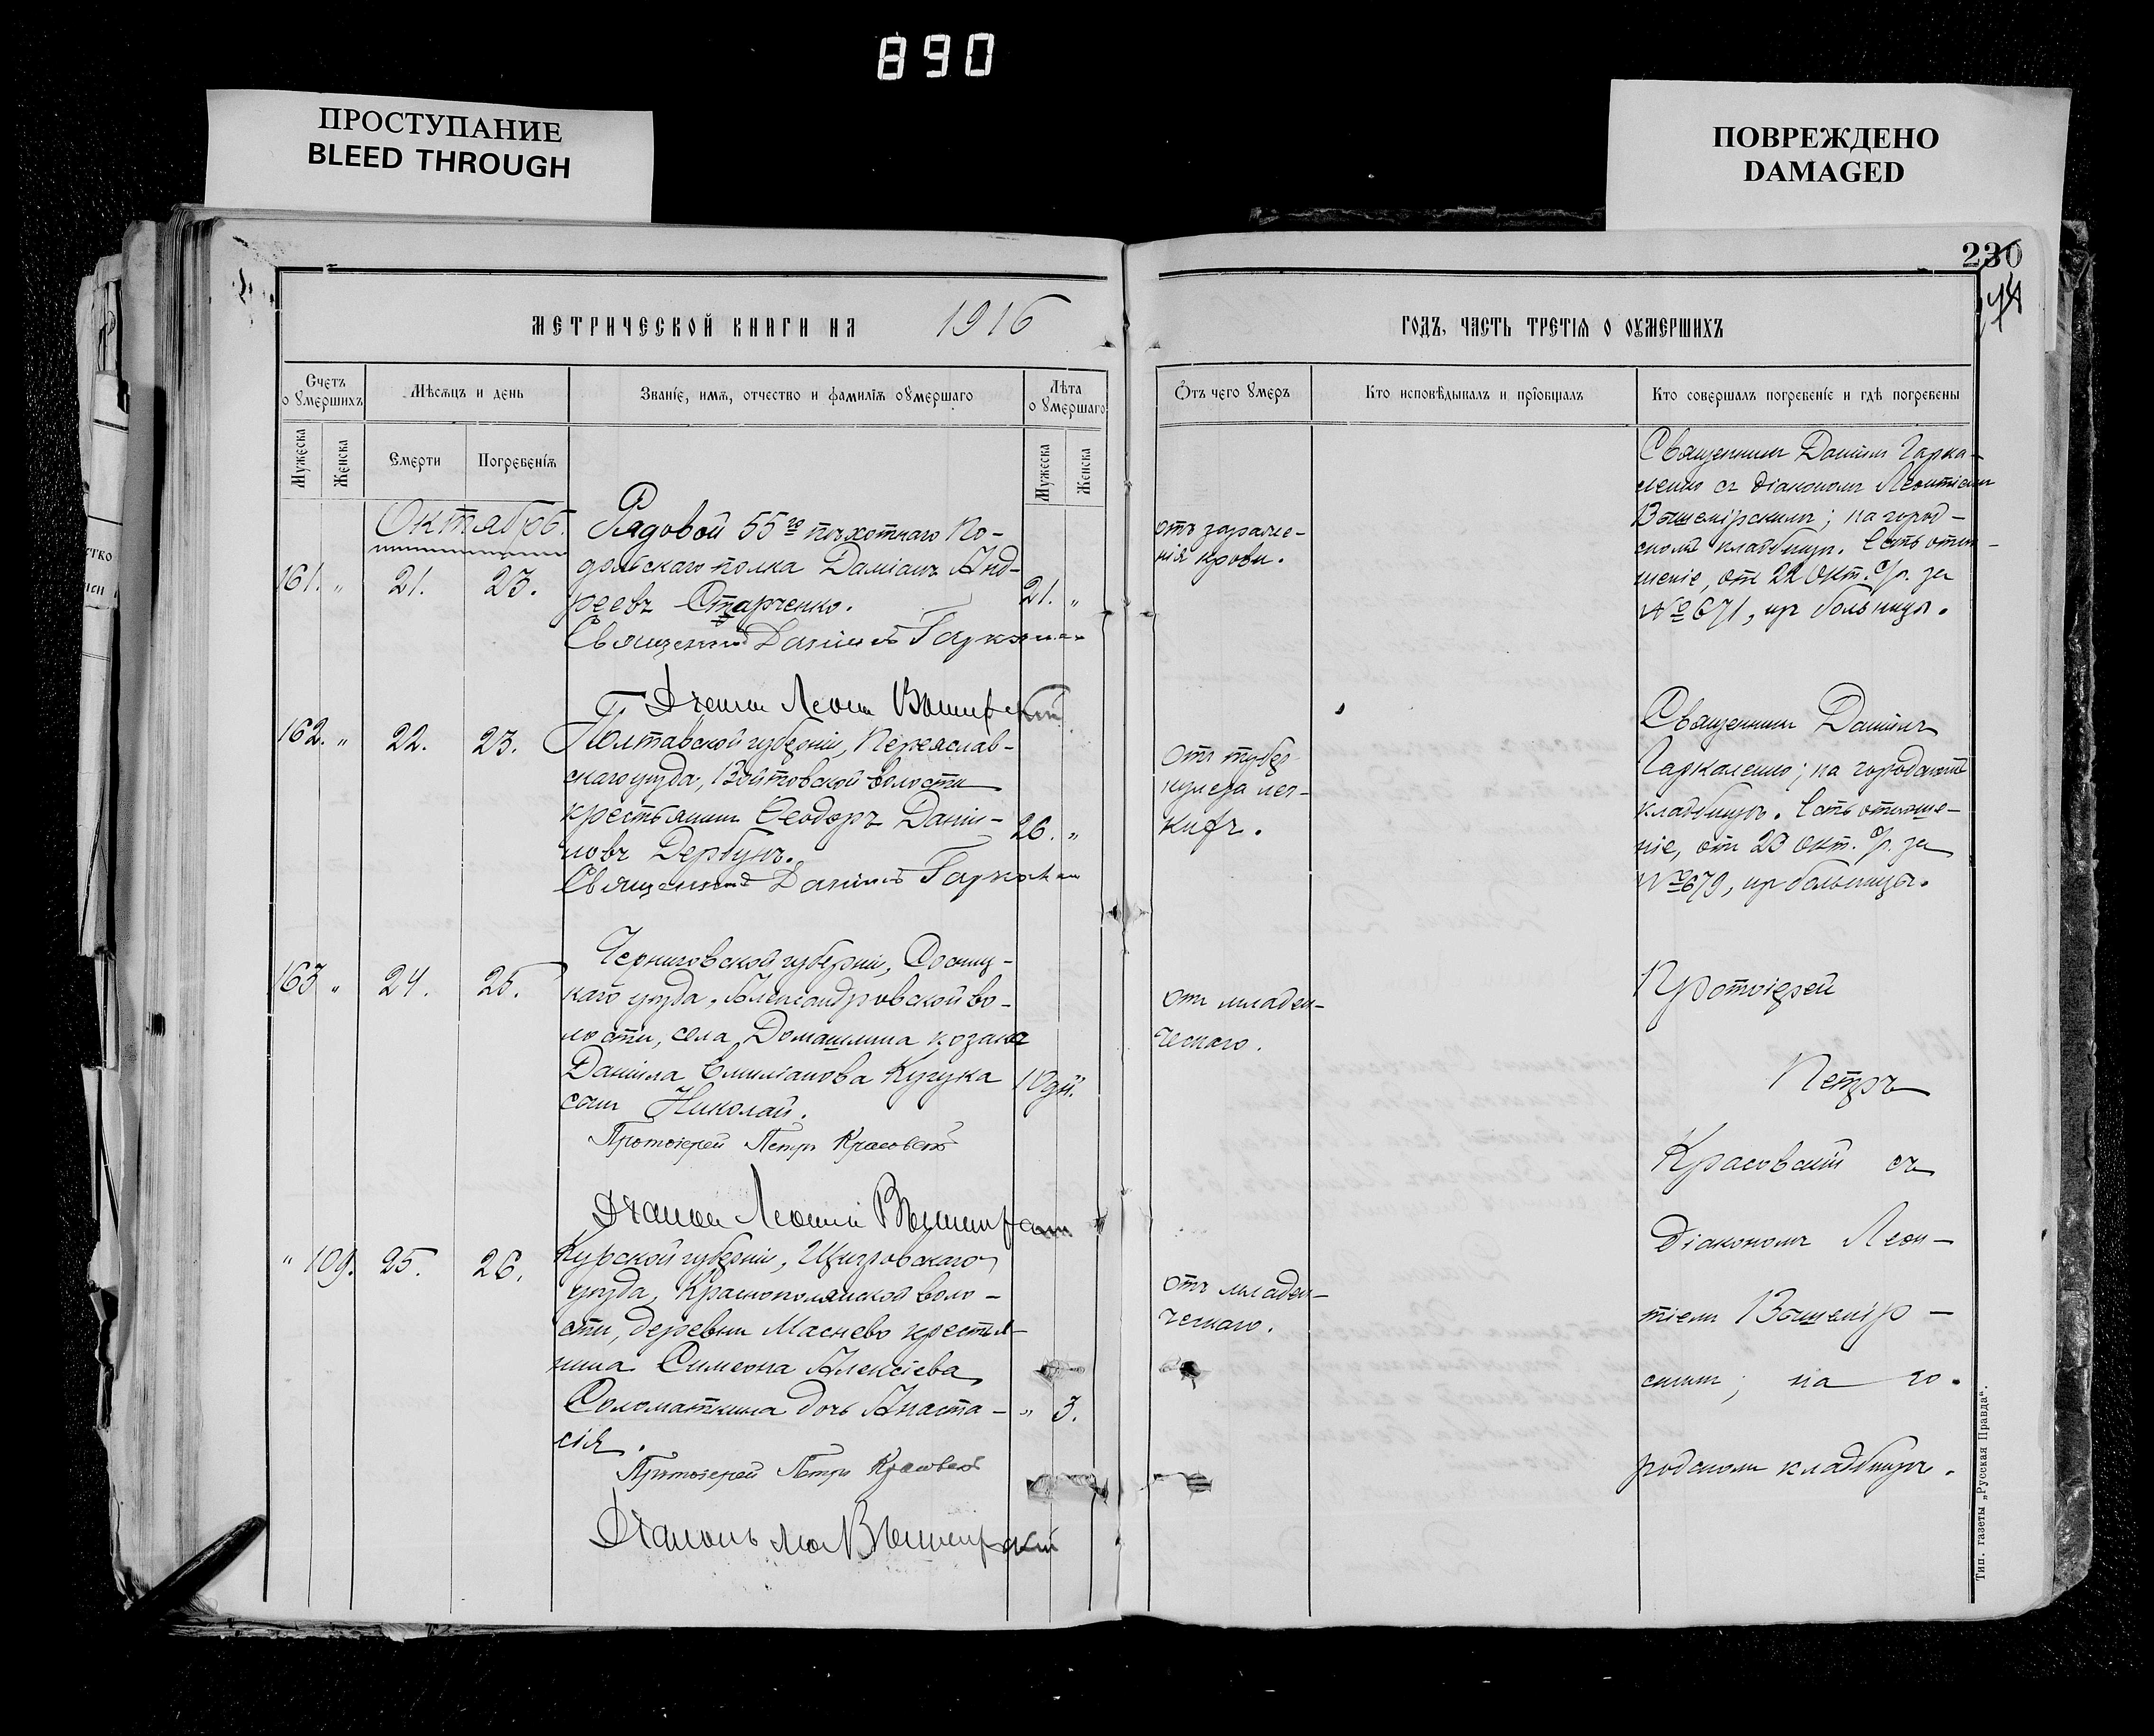 890
ПРОСТУПАНИЕ
BLEED THROUGH
ПОВРЕЖДЕНО
DAMAGED
230
МЕТРИЧЕСКОЙ КНИГИ НА 1916
ГОДЪ, ЧАСТЬ ТРЕТІЯ О ОУМЕРШИХЪ
Счетъ
о умершихъ
Мѣсяцъ и день
Званіе, имя, отчество и фамилія оумершаго
Лѣта
о умершаго
Мужеска
Женска
Смерти
Погребенія
Мужеска
Женска
Отъ чего умеръ
Кто исповѣдывалъ и пріобщалъ
Кто совершалъ погребеніе и гдѣ погребены
Октябрь.
161. " 21. 23.
Рядовой 55го пѣхотнаго По-
дольскаго полка Даміанъ Анд-
реевъ Старченко.
21. "
Священникъ Даніилъ Гаркаленко
Діаконъ Леон Вышемірскій
отъ зараже-
нія крови.
Священникъ Даніилъ Гарка-
ленко съ діакономъ Леонтіемъ
Вышемірскимъ; на город-
скомъ кладбищѣ. Есть отно-
шеніе, отъ 22 Окт. с/г. за
№ 671, изъ больницы.
162. " 22. 23.
Полтавской губерніи, Переяслав-
скаго уѣзда, Войтовской волости
крестьянинъ Ѳеодоръ Даніи-
ловъ Дербунъ.
26. "
Священникъ Даніилъ Гаркален
отъ тубер-
кулеза лег-
кихъ.
Священникъ Даніилъ
Гаркаленко; на городскомъ
кладбищѣ. Есть отноше-
ніе, отъ 23 Окт. с/г. за
№ 679, изъ больницы.
163 " 24. 25.
Черниговской губерніи, Сосниц-
каго уѣзда, Александровской во-
лости, села Домашлина козака
Даніила Емиліанова Кугука
сынъ Николай.
10 дн.
Протоіерей Петръ Красовскій
Діаконъ Леонтій Вышемірскій
отъ младен-
ческаго.
Протоіерей
Петръ
Красовскій съ
діакономъ Леон-
тіемъ Вышемір-
скимъ; на го-
родскомъ кладбищѣ.
" 109. 25. 26.
Курской губерніи, Щигровскаго
уѣзда, Краснополянской воло-
сти, деревни Маснево крестья-
нина Симеона Алексіева
Соломаткина дочь Анаста-
сія.
" 3.
Протоіерей Петръ Красовскій
Діаконъ Лео Вышемірскій
отъ младен-
ческаго.
Тип. газеты „Русская Правда".